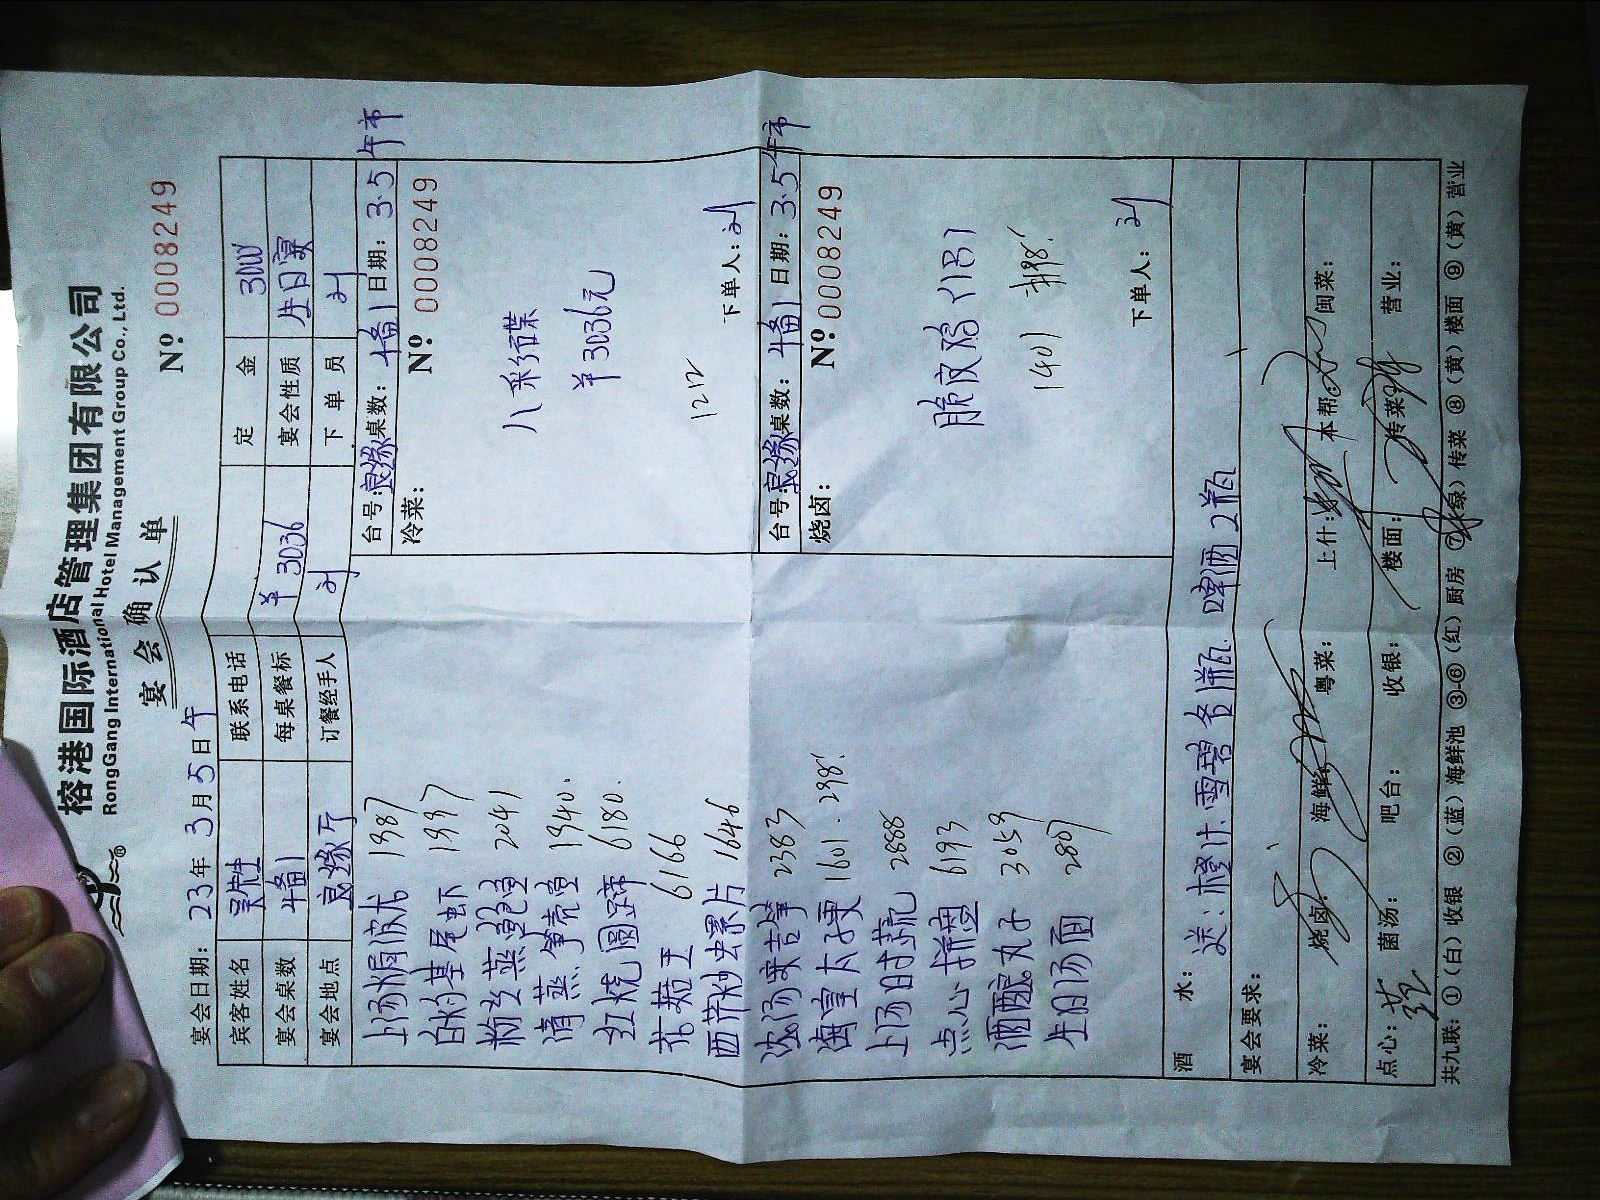 榕港国际酒店管理集团有限公司
RongGang International Hotel Management Group Co., Ltd.
宴会确认单
宴会日期：23年3月5日午
Nº 0008249
宾客姓名 吴先生 联系电话 定金 300
宴会桌数 1备1 每桌餐标 ¥3036 宴会性质 生日宴
宴会地点 良缘厅 订餐经手人 刘 下单员 刘
台号：良缘 桌数：1备1 日期：3.5 午市
冷菜： Nº 0008249
八彩碟
¥3036元
1212
下单人：刘
上汤焗波龙 1987
白灼基尾虾 1997
粉丝蒸鲍鱼 2041
清蒸笋壳鱼 1940
红烧圆蹄 6180
花菇王 6166
西芹炒虫螺片 1646
浓汤 2383
海皇大子更 1601 . 298!
上汤时蔬 2888
点心拼盘 6193
酒酿丸子 3059
生日汤面 2807
台号：良缘 桌数：1备1 日期：3.5 午市
烧卤： Nº 0008249
脆皮鸡(1B)
1401 298!
下单人：刘
酒水： 送：橙汁.雪碧各1瓶 啤酒2瓶
宴会要求：
冷菜： 烧卤： 海鲜： 粤菜： 上什： 本帮： 闽菜：
点心： 菌汤： 吧台： 收银： 楼面： 传菜： 营业：
共九联：①(白)收银 ②(蓝)海鲜池 ③-⑥(红)厨房 ⑦(绿)传菜 ⑧(黄)楼面 ⑨(黄)营业